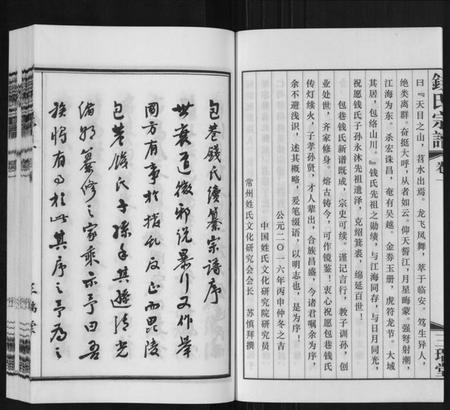 錢氏宗譜 卷一
三瑞堂
曰『天目之山，苕水出焉，龙飞凤舞，萃于临安。笃生异人，
绝类离群。奋挺大呼，从者如云。仰天誓江，月星晦蒙。强弩射潮，
江海为东。杀宏诛昌，奄有吴越。金券玉册，虎符龙节。大城
其居，包络山川。』钱氏先祖之勋绩，与江海同存，与日月同光，
祝愿钱氏子孙永沐先祖遗泽，克绍箕裘，绵延百世！
包巷钱氏新谱既成，宗史可续。谨记言行，教子训孙，创
业处世，齐家修身。熔古铸今，可作镜鉴。衷心祝愿包巷钱氏
传灯续火，子孝孙贤，才人辈出，合族昌盛，今诸君嘱余为序，
余不避浅识，述其概略，爰笔缀语，以明志也，是为序！
公元二〇一六年丙申仲冬之吉
中国姓氏文化研究院研究员
常州姓氏文化研究会会长 苏慎拜撰
包巷錢氏續纂宗譜序
世衰道微邪说暴行又作举
国方有事於拨乱反正而毗陵
包巷錢氏子孫手其遊清光
绪朔纂修之家乘示予曰吾
族将有事於此其序之予为之
三瑞堂